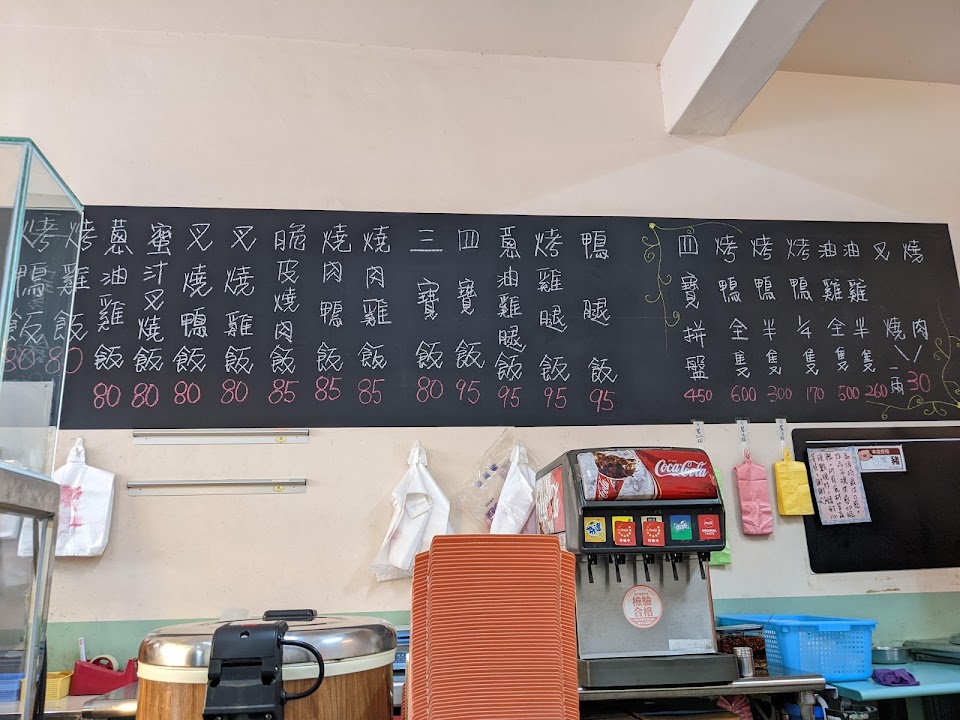 烤鴨飯 80
烤雞飯 80
蔥油雞飯 80
蜜汁叉燒飯 80
叉燒鴨飯 80
叉燒雞飯 80
脆皮燒肉飯 85
燒肉鴨飯 85
燒肉雞飯 85
三寶飯 80
四寶飯 95
蔥油雞腿飯 95
烤雞腿飯 95
鴨腿飯 95
四寶拼盤 450
烤鴨全隻 600
烤鴨半隻 300
烤鴨¼隻 170
油雞全隻 500
油雞半隻 260
叉燒
燒肉
一兩 30
Coca-Cola
檢驗
合格
豬